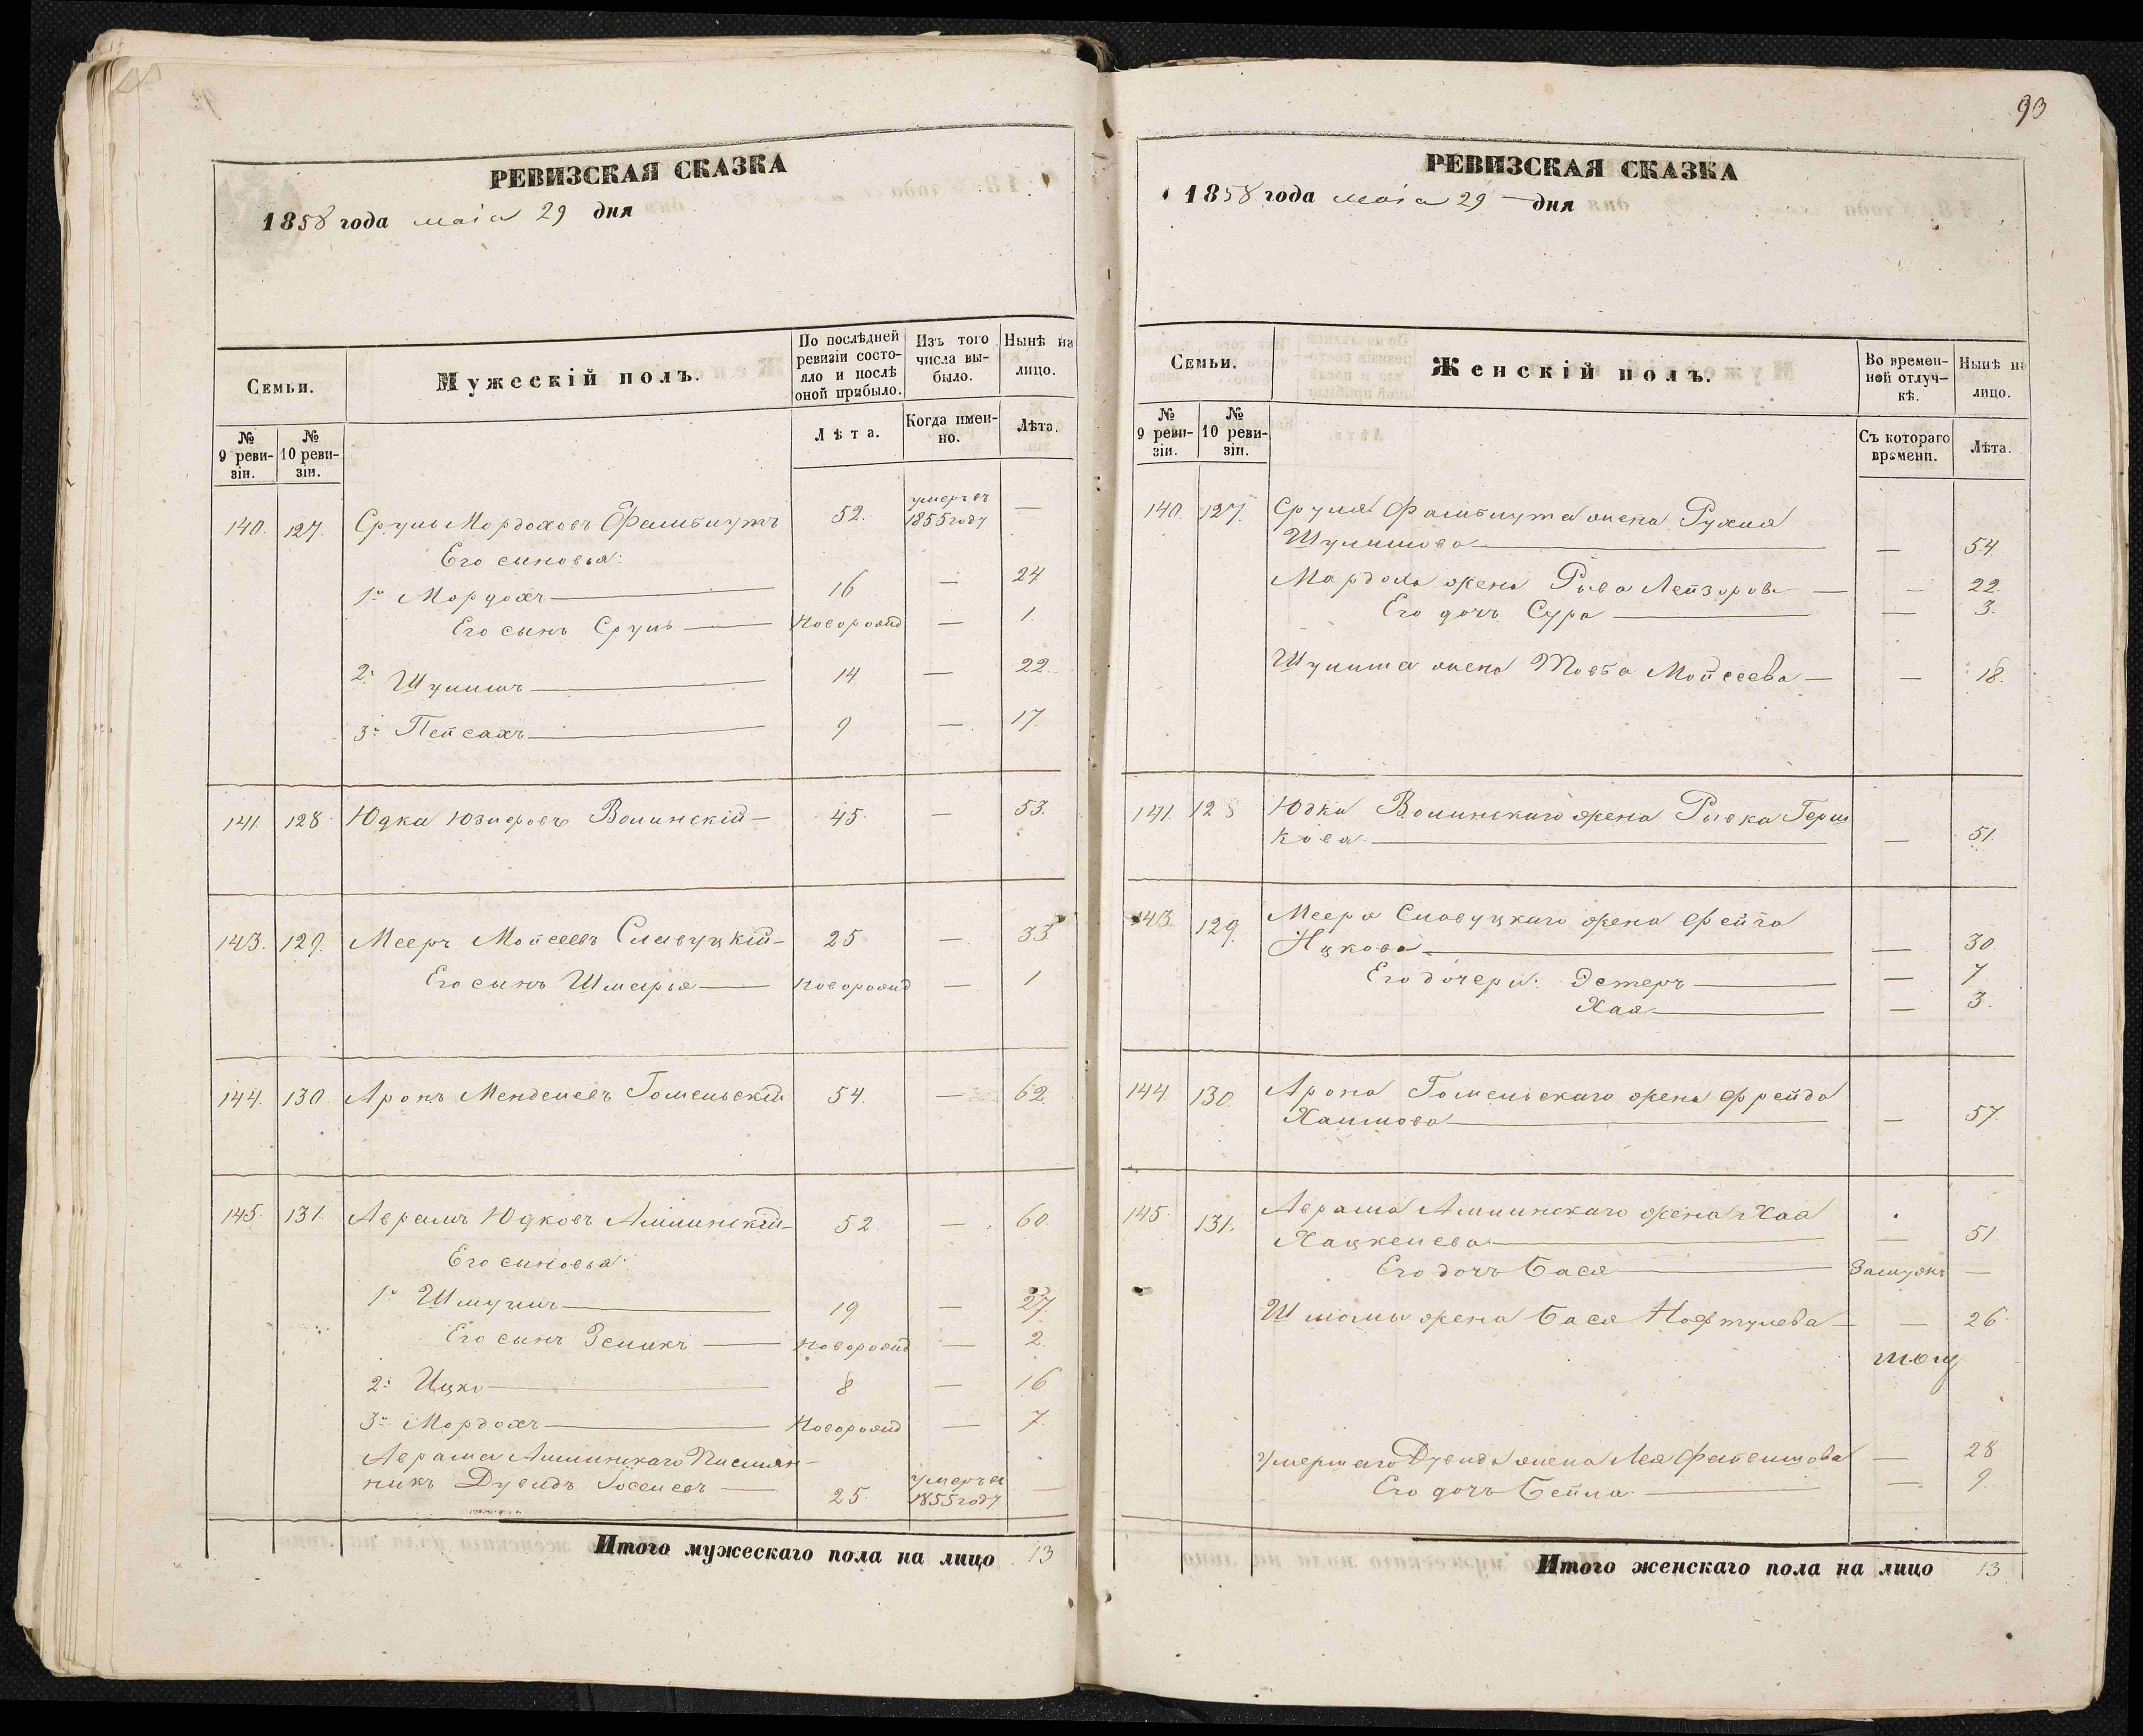 РЕВИЗСКАЯ СКАЗКА
1858 года маiя 29 дня
Семьи.
Мужескій полъ.
По послѣдней ревизіи состо-
яло и послѣ
оной прибыло.
Изъ того
числа вы-
было.
Нынѣ на
лицо.
№
9 реви-
зіи.
№
10 реви-
зіи.
Лѣта.
Когда имен-
но.
Лѣта.
140. 127. Сруль Мордоховъ 52. умеръ въ 1855 году —
Его синовья:
1й Мордохъ — 16 — 24
Его сынъ Сруль — Новорожд — 1.
2й Шулимъ — 14 — 22.
3й Пейсахъ — 9 — 17.
141. 128 Юдка Волинскій — 45 — 53.
143. 129. Мееръ Мойсеевъ Славуцкій — 25 — 33
Его сынъ Шмерья — Новорожд — 1
144. 130. Аронъ Менделевъ Гомельскій 54. — 62.
145. 131. Аврамъ Юдковъ 52. — 60.
Его синовья:
1й Шмуль — 19 — 27.
Его сынъ Зеликъ — Новорожд — 2.
2й Ицко — 8 — 16
3й Мордохъ — Новорожд — 7.
Аврама Племян-
никъ Дувидъ Иоселевъ — 25. умеръ въ 1855 году —
Итого мужескаго пола на лицо 13
93
РЕВИЗСКАЯ СКАЗКА
1858 года маiя 29 — дня
Семьи.
Женскій полъ.
Во времен-
ной отлуч-
кѣ.
Нынѣ на
лицо.
№
9 реви-
зіи.
№
10 реви-
зіи.
Съ котораго
времени.
Лѣта.
140. 127. Сруля жена Рухля
Шулимова — — 54.
Мордоха жена Рива Лейзорова — — 22.
Его дочъ Сура — — 3.
Шулима жена Товба Мойсеева — — 18.
141. 128 Юдки Волинскаго жена Ривка Герш
кова — — 51.
143. 129. Меера Славуцкаго жена Фейга
Ицкова — — 30.
Его дочери: Эстеръ — — 7
Хая — — 3.
144. 130. Арона Гомельскаго жена Фрейда
Хаимова — — 57.
145. 131. Аврама жена Хая
Хацкелева — — 51
Его дочъ Бася — Замужъ —
жена Бася Нафтулева — — 26.
Умершаго Дувида жена Лея — 28
Его дочъ Бейла — — 9.
Итого женскаго пола на лицо 13